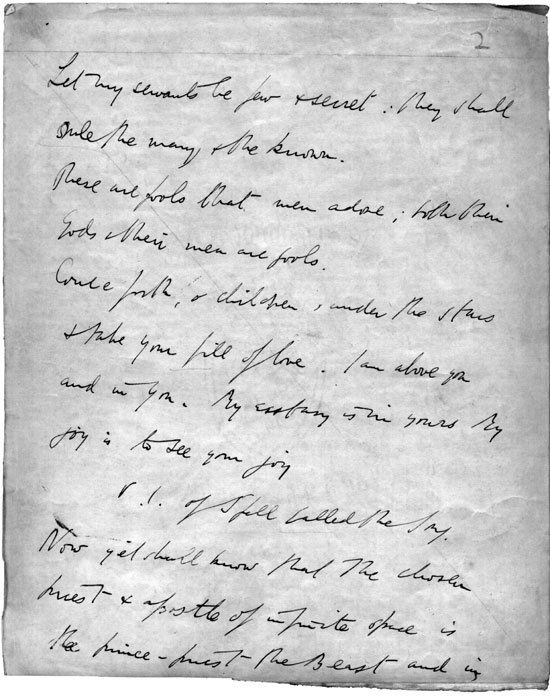 2
Let my servants be few & secret : they shall
rule the many & the known.
These are fools that men adore ; both their
Gods & their men are fools.
Come forth, o children, under the stars
& take your fill of love. I am above you
and in you. My ecstasy is in yours My
joy is to see your joy
V. 1. of Spell called the Song.
Now ye shall know that the chosen
priest & apostle of infinite space is
the prince-priest the Beast and in